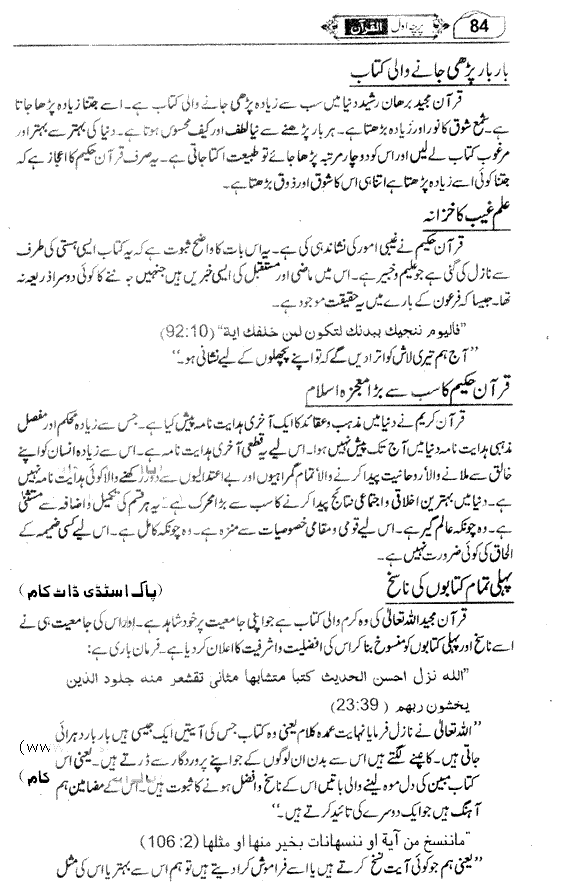 84 پرچہ اول القرآن
بار بار پڑھی جانے والی کتاب
قرآن مجید برھان رشید دنیا میں سب سے زیادہ پڑھی جانے والی کتاب ہے۔ اسے جتنا زیادہ پڑھا جاتا
ہے۔ شمع شوق کا نور اور زیادہ بڑھتا ہے۔ ہر بار پڑھنے سے نیا لطف اور کیف محسوس ہوتا ہے۔ دنیا کی بہتر سے بہتر اور
مرغوب کتاب لے لیں اور اس کو دو چار مرتبہ پڑھا جائے تو طبیعت اکتا جاتی ہے۔ یہ صرف قرآن حکیم کا اعجاز ہے کہ
جتنا کوئی اسے زیادہ پڑھتا ہے اتنا ہی اس کا شوق اور ذوق بڑھتا ہے۔
علم غیب کا خزانہ
قرآن حکیم نے غیبی امور کی نشاندہی کی ہے۔ یہ اس بات کا واضح ثبوت ہے کہ یہ کتاب ایسی ہستی کی طرف
سے نازل کی گئی ہے جو علیم و خبیر ہے۔ اس میں ماضی اور مستقبل کی ایسی خبریں ہیں جنہیں جاننے کا کوئی دوسرا ذریعہ نہ
تھا۔ جیسا کہ فرعون کے بارے میں یہ حقیقت موجود ہے۔
”فاليوم ننجيك ببدنك لتكون لمن خلفك اية“ (92:10)
”آج ہم تیری لاش کو اتر ادیں گے کہ تو اپنے پچھلوں کے لیے نشانی ہو۔“
قرآن حکیم کا سب سے بڑا معجزہ اسلام
قرآن کریم نے دنیا میں مذہب و عقائد کا ایک آخری ہدایت نامہ پیش کیا ہے۔ جس سے زیادہ محکم اور مفصل
مذہبی ہدایت نامہ دنیا میں آج تک پیش نہیں ہوا۔ اس لیے یہ قطعی آخری ہدایت نامہ ہے۔ اس سے زیادہ انسان کو اپنے
خالق سے ملانے والا روحانیت پیدا کرنے والا تمام گمراہیوں اور بے اعتدالیوں سے دور رکھنے والا کوئی ہدایت نامہ نہیں
ہے۔ دنیا میں بہترین اخلاقی و اجتماعی نتائج پیدا کرنے کا سب سے بڑا محرک ہے۔ یہ ہر قسم کی تکمیل و اضافہ سے مستثنیٰ
ہے۔ وہ چونکہ عالم گیر ہے۔ اس لیے قومی و مقامی خصوصیات سے منزہ ہے۔ وہ چونکہ کامل ہے۔ اس لیے کسی ضمیمہ کے
الحاق کی کوئی ضرورت نہیں ہے۔
پہلی تمام کتابوں کی ناسخ (پاک اسٹڈی ڈاٹ کام)
قرآن مجید اللہ تعالیٰ کی وہ کرم والی کتاب ہے جو اپنی جامعیت پر خود شاہد ہے۔ اور اس کی جامعیت ہی نے
اسے ناسخ اور پہلی کتابوں کو منسوخ بنا کر اس کی افضلیت و اشرفیت کا اعلان کر دیا ہے۔ فرمان باری ہے:
”الله نزل احسن الحديث كتبا متشابها مثانى تقشعر منه جلود الذين
يخشون ربهم (23:39)
”اللہ تعالیٰ نے نازل فرمایا نہایت عمدہ کلام یعنی وہ کتاب جس کی آیتیں ایک جیسی ہیں بار بار دہرائی
جاتی ہیں۔ کانپنے لگتے ہیں اس سے بدن ان لوگوں کے جو اپنے پروردگار سے ڈرتے ہیں۔ یعنی اس (ww
کتاب مبین کی دل موہ لینے والی باتیں اس کے ناسخ و افضل ہونے کا ثبوت ہیں۔ اس کے مضامین ہم کام)
آہنگ ہیں جو ایک دوسرے کی تائید کرتے ہیں۔“
”ماننسخ من آية او ننسهانات بخير منها او مثلها (106:2)
”یعنی ہم جو کوئی آیت نسخ کرتے ہیں یا اسے فراموش کرا دیتے ہیں تو ہم اس سے بہتر یا اس کی مثل